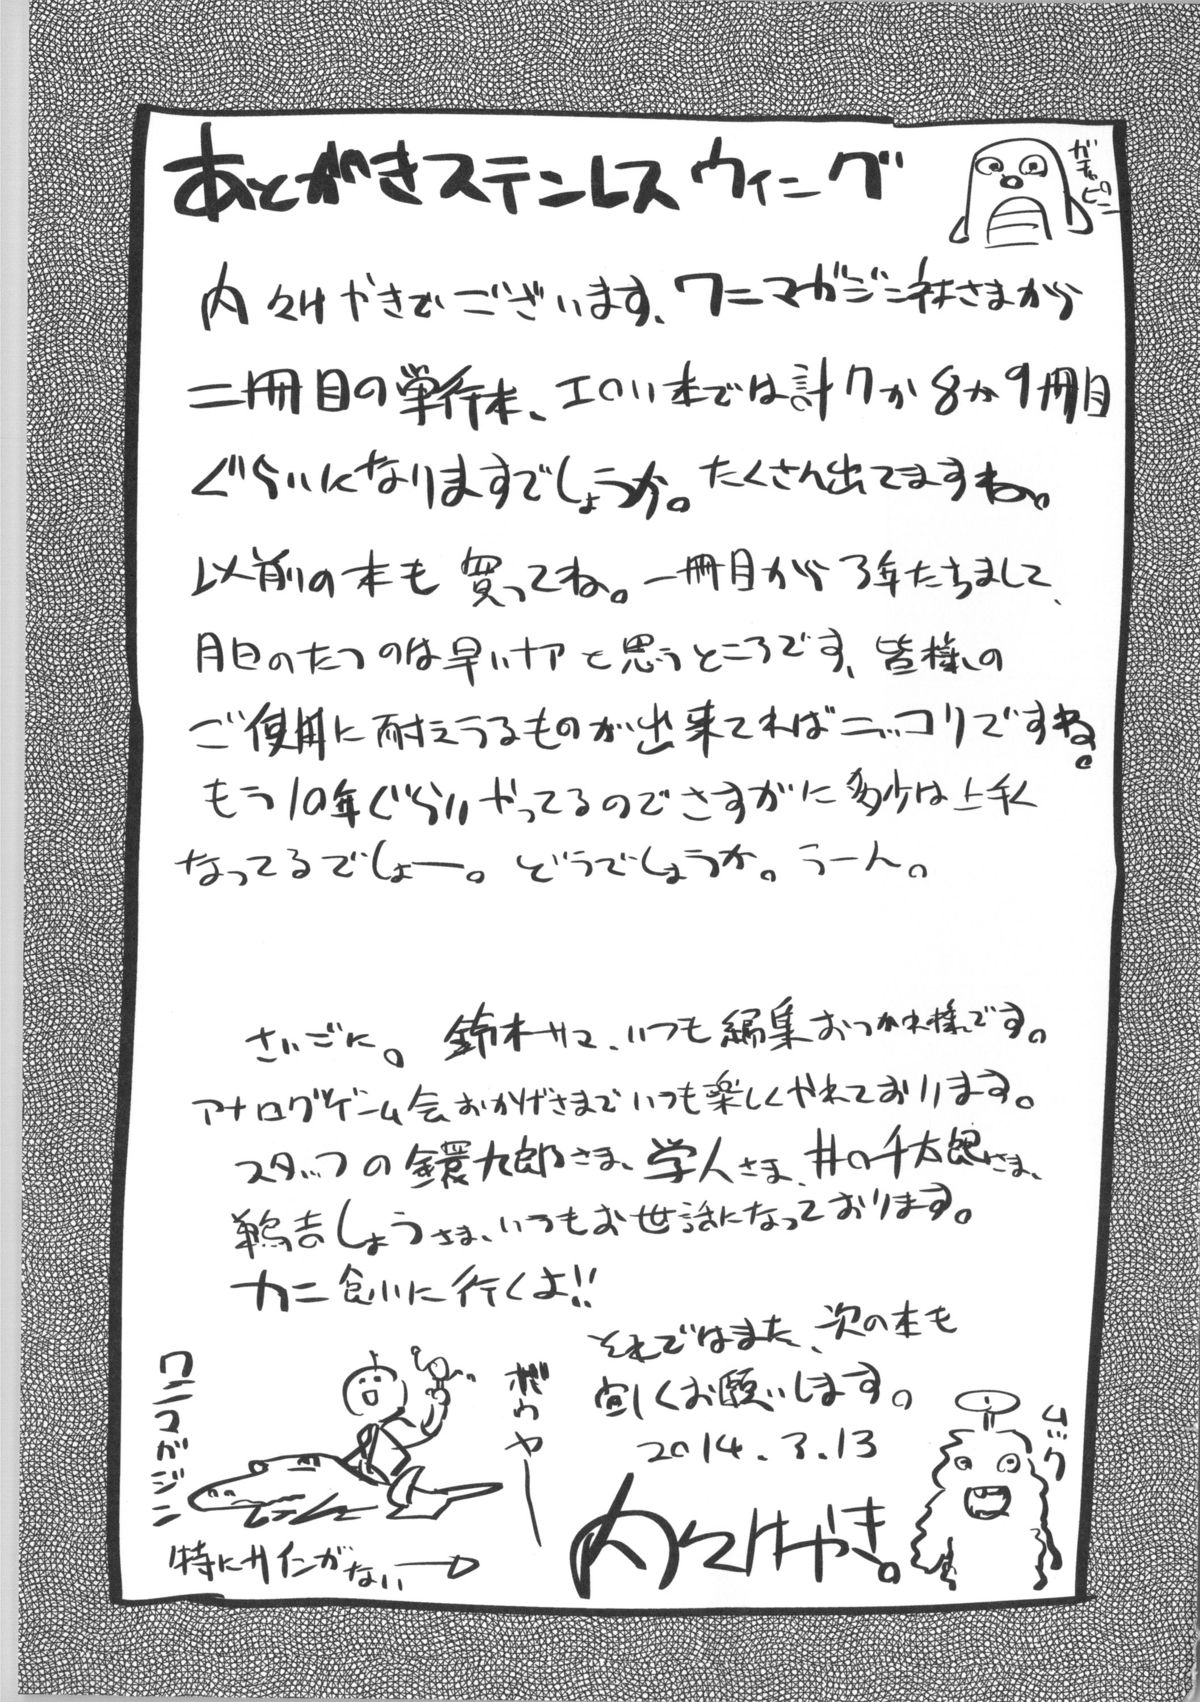 あとがきステンレスウィング
がちゃピン
内々けやきでございます、ワニマガジン社さまから
二冊目の単行本、エロい本では計7か8か9冊目
ぐらいになりますでしょうか。たくさん出てますね。
以前の本も買ってね。一冊目から3年たちまして、
月日のたつのは早いナアと思うところです、皆様の
ご使用に耐えうるものが出来てればニッコリですね。
もう10年ぐらいやってるのでさすがに多少は上手く
なってるでしょー。どうでしょうか。うーん。
さいごに。鈴木サマ、いつも編集おつかれ様です。
アナログゲーム会おかげさまでいつも楽しくやれております。
スタッフの九郎さま、学人さま、井の千太郎さま、
吉しょうさま、いつもお世話になっております。
カニ食いに行くよ!!
それではまた、次の本も
宜しくお願いします。
2014.3.13
内々けやき。
ワニマガジン
ボウヤー
ムック
特にサインがない